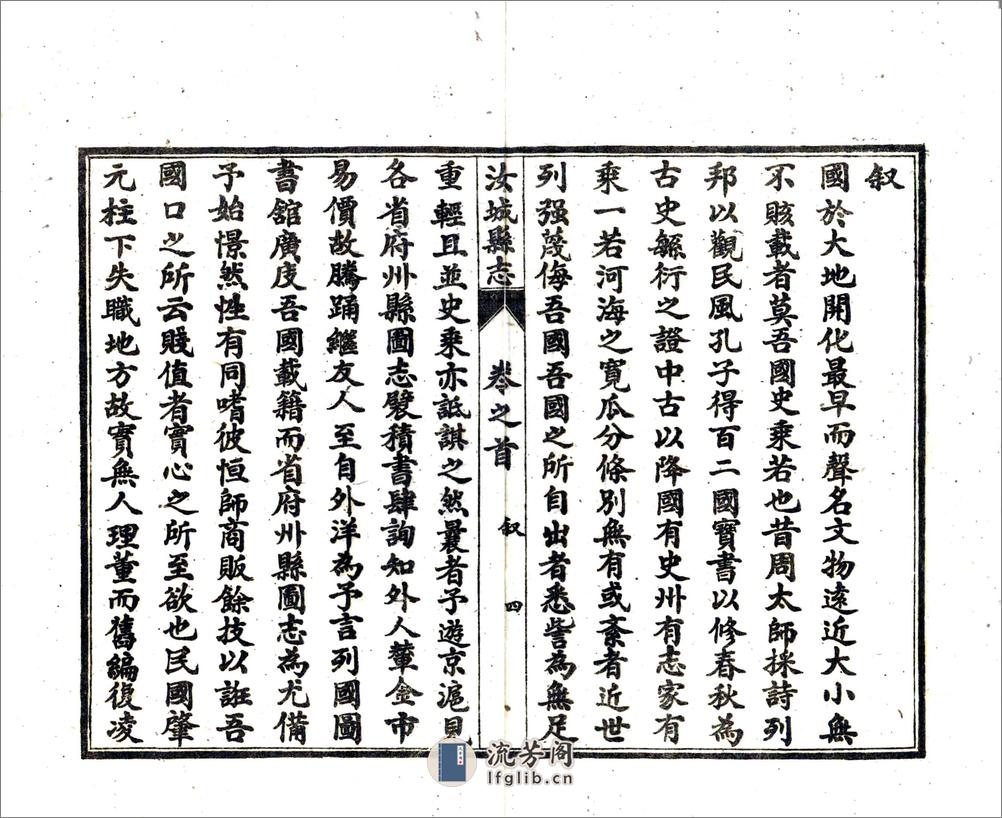 叙
國於大地開化最早而聲名文物遠近大小無
不賅載者莫吾國史乘若也昔周太師採詩列
邦以觀民風孔子得百二國寶書以修春秋為
古史緐衍之證中古以降國有史州有志家有
乘一若河海之寬瓜分條別無有或紊者近世
列强蔑侮吾國吾國之所自出者悉訾為無足
汝城縣志
卷之首
叙
四
重輕且並史乘亦詆諆之然曩者予遊京滬見
各省府州縣圖志襞積書肆詢知外人輦金市
易價故騰踊繼友人至自外洋為予言列國圖
書舘廣庋吾國載籍而省府州縣圖志為尤備
予始憬然性有同嗜彼恒師商販餘技以誑吾
國口之所云賤值者實心之所至欲也民國肇
元柱下失職地方故實無人理董而舊編復凌
流芳阁
lfglib.cn